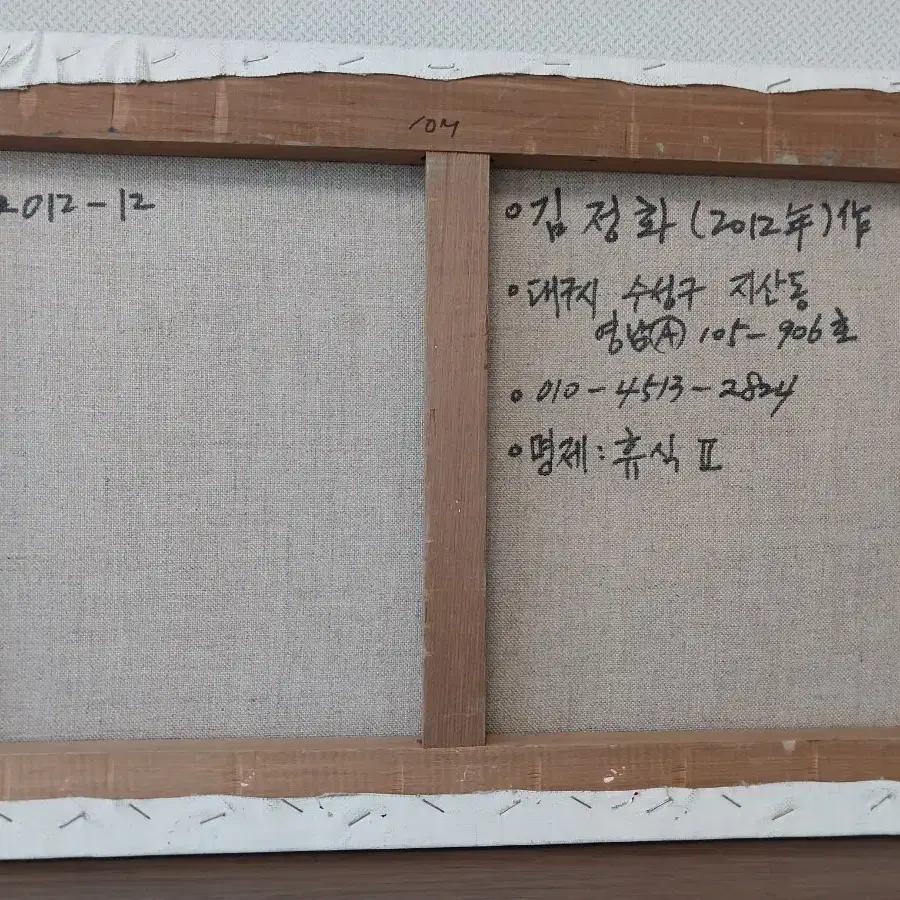 10M
2012-12
◦김 정 화 (2012年)作
◦대구시 수성구 지산동
영남Ⓐ 105-906호
◦010-4513-2824
◦명제: 휴식 Ⅱ